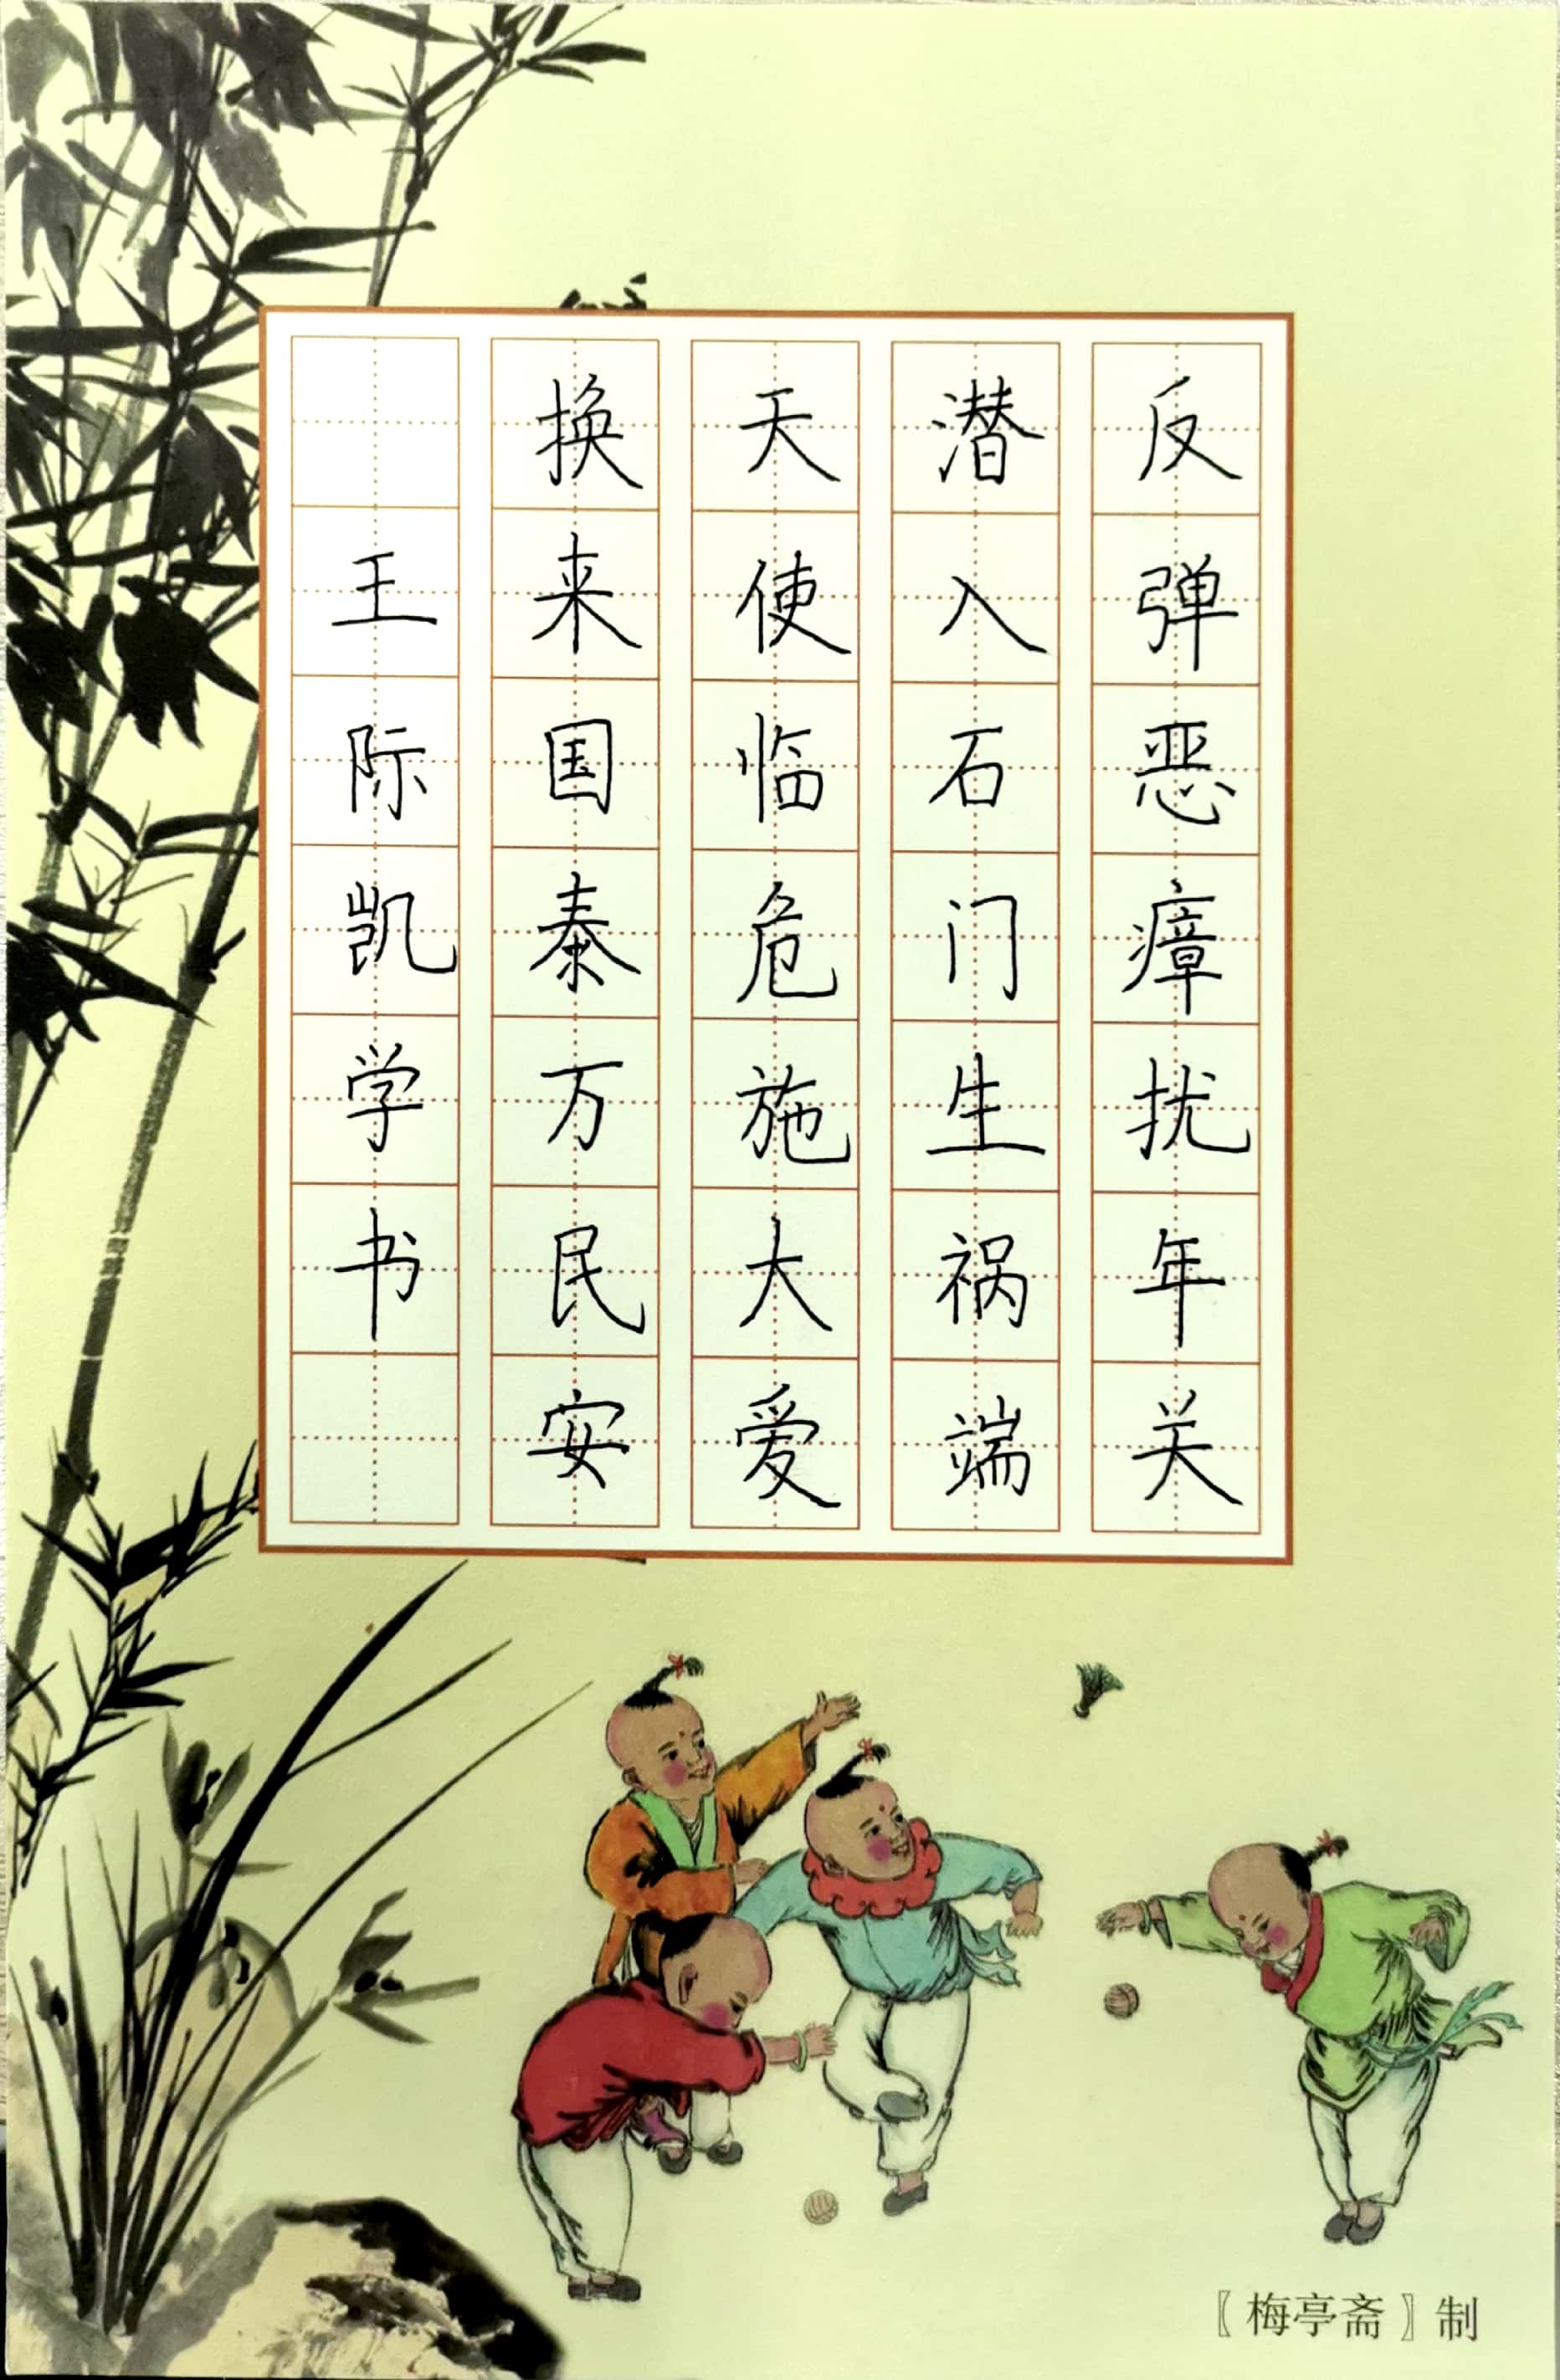 反弹恶瘴扰年关
潜入石门生祸端
天使临危施大爱
换来国泰万民安
王际凯学书
〖梅亭斋〗制